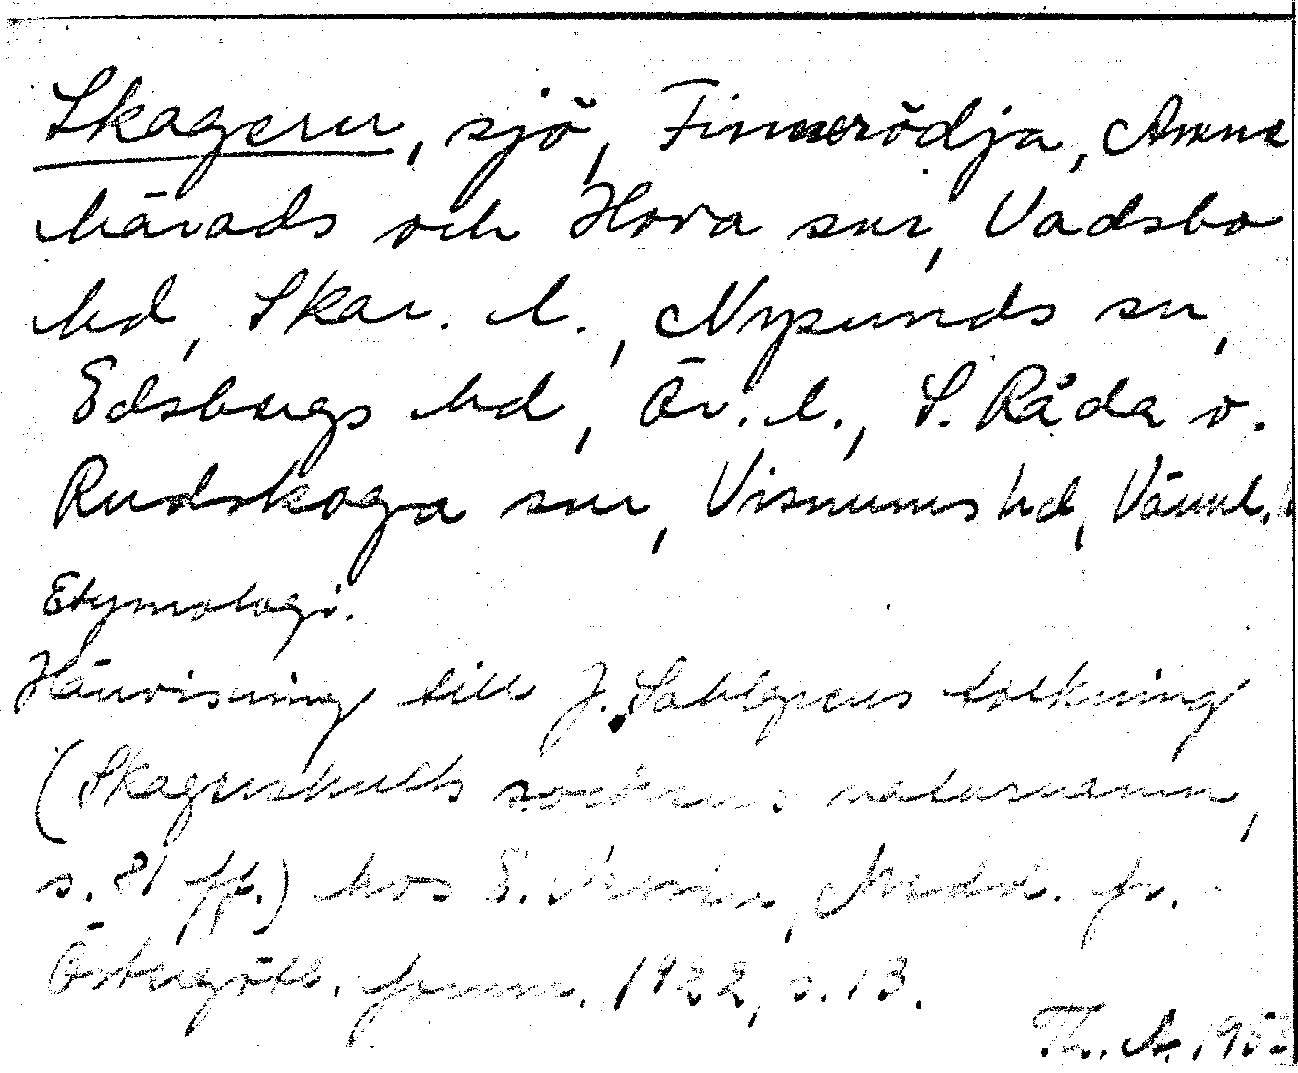 Skagern, sjö, Finnerödja, Amne
härads och Hova snr, Vadsbo
hd, Skar. l., Nysunds sn,
Edsbergs hd, Ör. l., S. Råda o.
Rudskoga snr, Visnums hd, Värml. l
Etymologi.
Hänvisning till J. Sahlgrens tolkning
(Skagershults sockens naturnamn,
s. 81 ff.) hos E. Modin, Medd. fr.
Östergötl. fornm. 1922, s. 13.
Th. A. 195